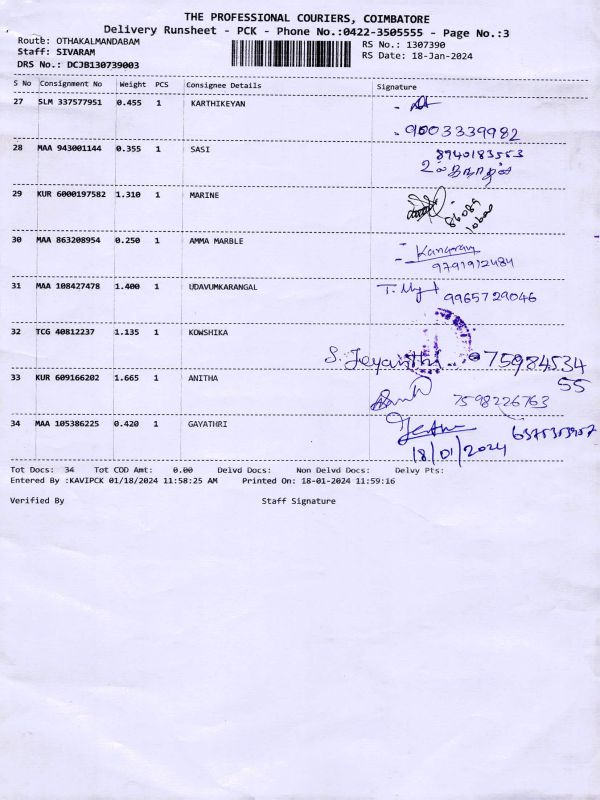 THE PROFESSIONAL COURIERS, COIMBATORE
Delivery Runsheet - PCK - Phone No.:0422-3505555 - Page No.:3
Route: OTHAKALMANDABAM RS No.: 1307390
Staff: SIVARAM RS Date: 18-Jan-2024
DRS No.: DCJB130739003
S No Consignment No Weight PCS Consignee Details Signature
27 SLM 337577951 0.455 1 KARTHIKEYAN
9003339982
28 MAA 943001144 0.355 1 SASI 8940183553
29 KUR 6000197582 1.310 1 MARINE
30 MAA 863208954 0.250 1 AMMA MARBLE
9791912484
31 MAA 108427478 1.400 1 UDAVUMKARANGAL 9965729046
32 TCG 40812237 1.135 1 KOWSHIKA
S. Jeyanthi 75984534
55
33 KUR 609166202 1.665 1 ANITHA
7598226763
34 MAA 105386225 0.420 1 GAYATHRI
18/01/2024
Tot Docs: 34 Tot COD Amt: 0.00 Delvd Docs: Non Delvd Docs: Delvy Pts:
Entered By :KAVIPCK 01/18/2024 11:58:25 AM Printed On: 18-01-2024 11:59:16
Verified By Staff Signature